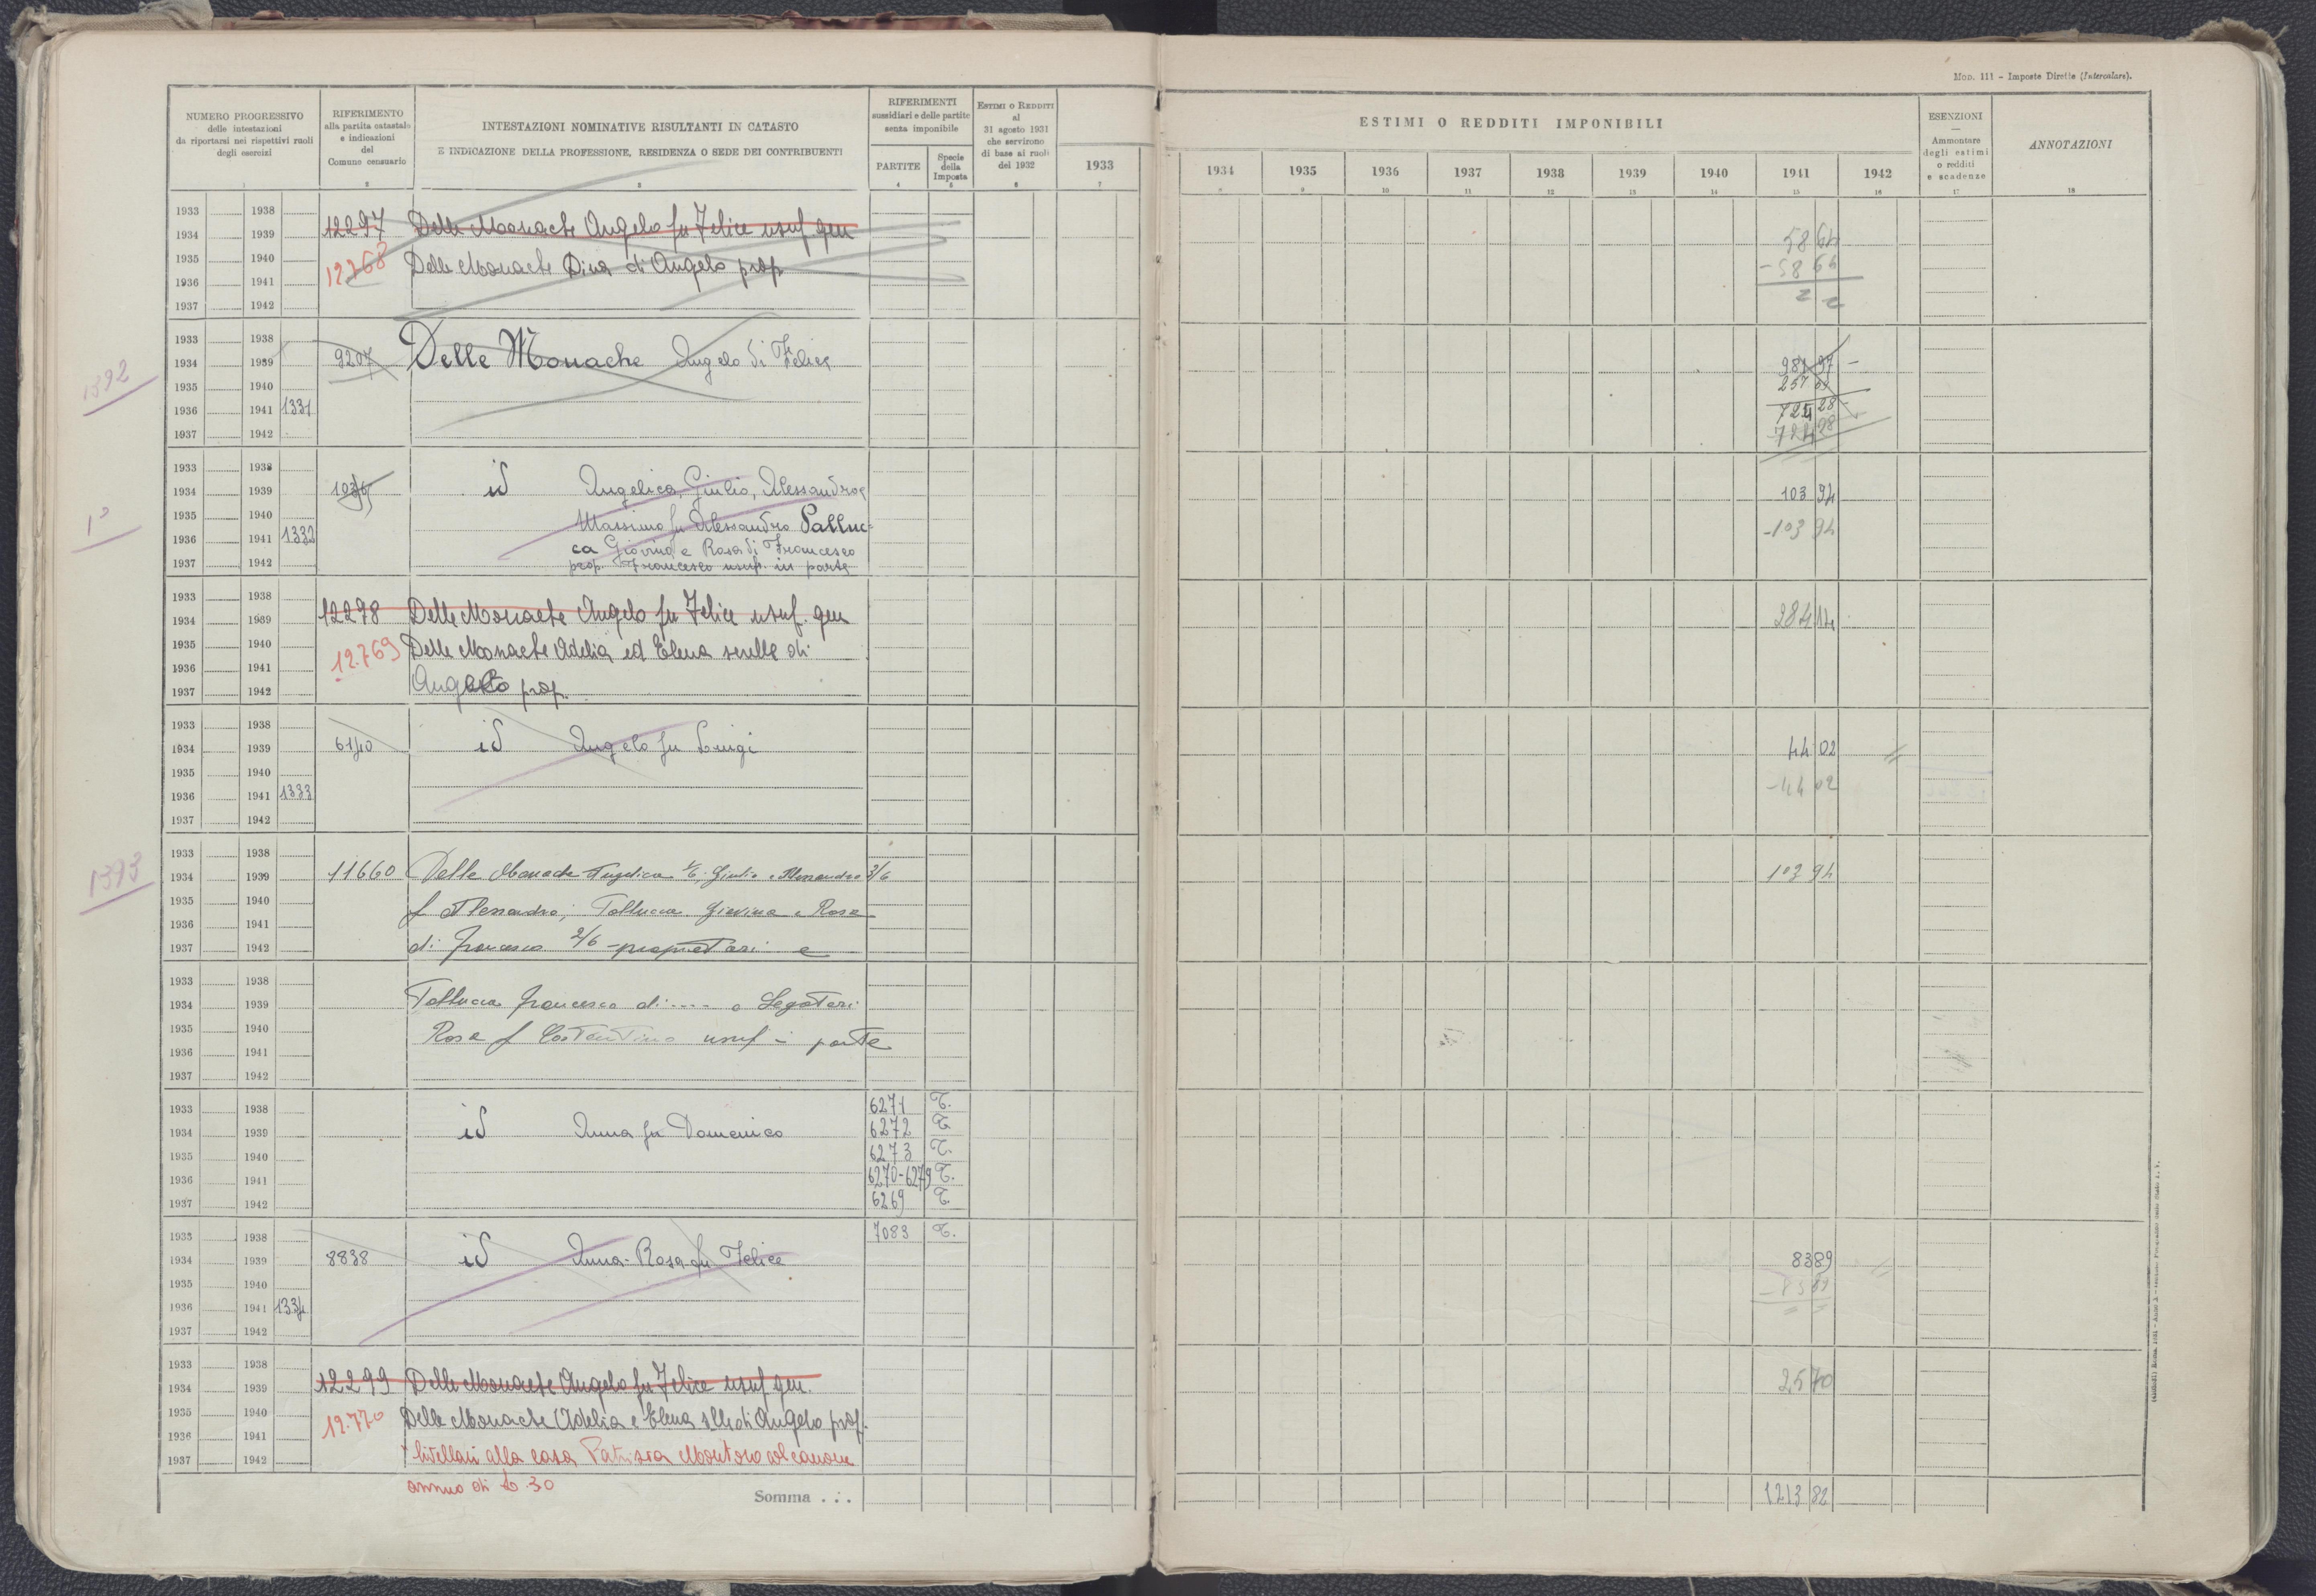 Mod. 111 - Imposte Dirette (Intercalare).
NUMERO PROGRESSIVO
delle intestazioni
da riportarsi nei rispettivi ruoli
degli esercizi
1
RIFERIMENTO
alla partita catastale
e indicazioni
del
Comune censuario
2
INTESTAZIONI NOMINATIVE RISULTANTI IN CATASTO
E INDICAZIONE DELLA PROFESSIONE, RESIDENZA O SEDE DEI CONTRIBUENTI
3
RIFERIMENTI
sussidiari e delle partite
senza imponibile
PARTITE
4
Specie
della
Imposta
5
ESTIMI O REDDITI
al
31 agosto 1931
che servirono
di base ai ruoli
del 1932
6
1933
7
ESTIMI O REDDITI IMPONIBILI
1934 1935 1936 1937 1938 1939 1940 1941 1942
9 10 11 12 13 14 15 16
ESENZIONI
Ammontare
degli estimi
o redditi
e scadenze
17
ANNOTAZIONI
18
1933 1938
1934 1939 12297 Delle Monache Angelo fu Felice usuf gen 58 64
1935 1940 12768 Delle Monache Dina di Angelo prop - 58 64
1936 1941
1937 1942
1933 1938
1934 1939 9207 Delle Monache Angelo di Felice 981 97 -
1392
1935 1940 257 69
1936 1941 1331 724 28
1937 1942 - 724 28
1933 1938
1934 1939 id Angelica, Giulio, Alessandro e 103 94
1935 1940 Massimo fu Alessandro Palluc-
1936 1941 1332 ca Giovina e Rosa di Francesco -103 94
1937 1942 prop. Francesco usuf. in parte
1933 1938
1934 1939 12298 Delle Monache Angelo fu Felice usuf. gen 284 14
1935 1940 12.769 Delle Monache Adelia ed Elena sorelle di
1936 1941
1937 1942 Angelo prop.
1933 1938
1934 1939 6140 id Angelo fu Luigi 44 02
1935 1940
1936 1941 1333 -44 02
1937 1942
1933 1938
1393
1934 1939 11660 Delle Monache Angelica 1/6 Giulio e Alessandro 3/6 103 94
1935 1940 f Alessandro; Palluccа Giovina e Rosa
1936 1941
1937 1942 di Francesco 2/6 - proprietari e
1933 1938
1934 1939 Pallucca Francesco di .... e Legatari
1935 1940 Rosa f Costantino usuf in parte
1936 1941
1937 1942
1933 1938 6271 T.
1934 1939 id Anna fu Domenico 6272 T.
1935 1940 6273 T.
1936 1941 6270-6279 T.
1937 1942 6269 T.
1933 1938 7083 T.
1934 1939 8838 id Anna-Rosa fu Felice 83 89
1935 1940 - 83 89
1936 1941 1334
1937 1942
1933 1938
1934 1939 12299 Delle Monache Angelo fu Felice usuf gen. 25 70
1935 1940 12.770 Delle Monache Adelia e Elena slle di Angelo prop.
1936 1941
1937 1942 livellari alla casa Patrizia Montoro col canone
annuo di L. 30
Somma . . . 1213 82